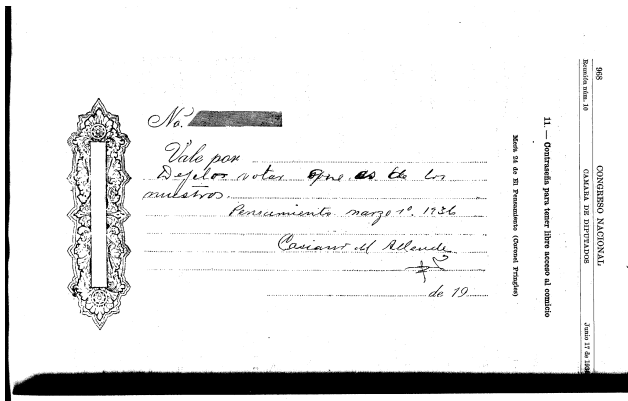 968
CONGRESO NACIONAL
Reunión núm. 10
CAMARA DE DIPUTADOS
Junio 17 de 1936
11. — Contraseña para tener libre acceso al comicio
Mesa 24 de El Pensamiento (Coronel Pringles)
No.
Vale por
Dejelos votar que es de los
nuestros
Pensamiento marzo 1º. 1936
Casiano M Allende
de 19